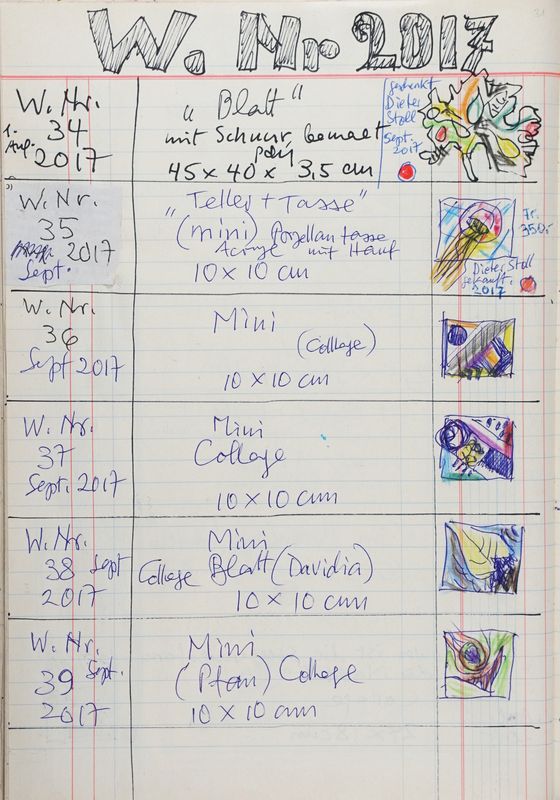 W. Nr 2017
W. Nr.
34
1. Aug.
2017
"Blatt"
mit Schnur, bemalt
45 x 40 x 3,5 cm
geschenkt
Dieter
Stoll
Sept.
2017
W. Nr.
35
2017
Sept.
"Teller + Tasse"
(mini) Porzellantasse
Acryl mit Hanf
10 x 10 cm
Fr.
350.-
Dieter Stoll
gekauft.
2017
W. Nr.
36
Sept 2017
Mini
(Collage)
10 x 10 cm
W. Nr.
37
Sept. 2017
Mini
Collage
10 x 10 cm
W. Nr.
38 Sept
2017
Mini
Collage Blatt (Davidia)
10 x 10 cm
W. Nr.
39 Sept.
2017
Mini
(Pfau) Collage
10 x 10 cm